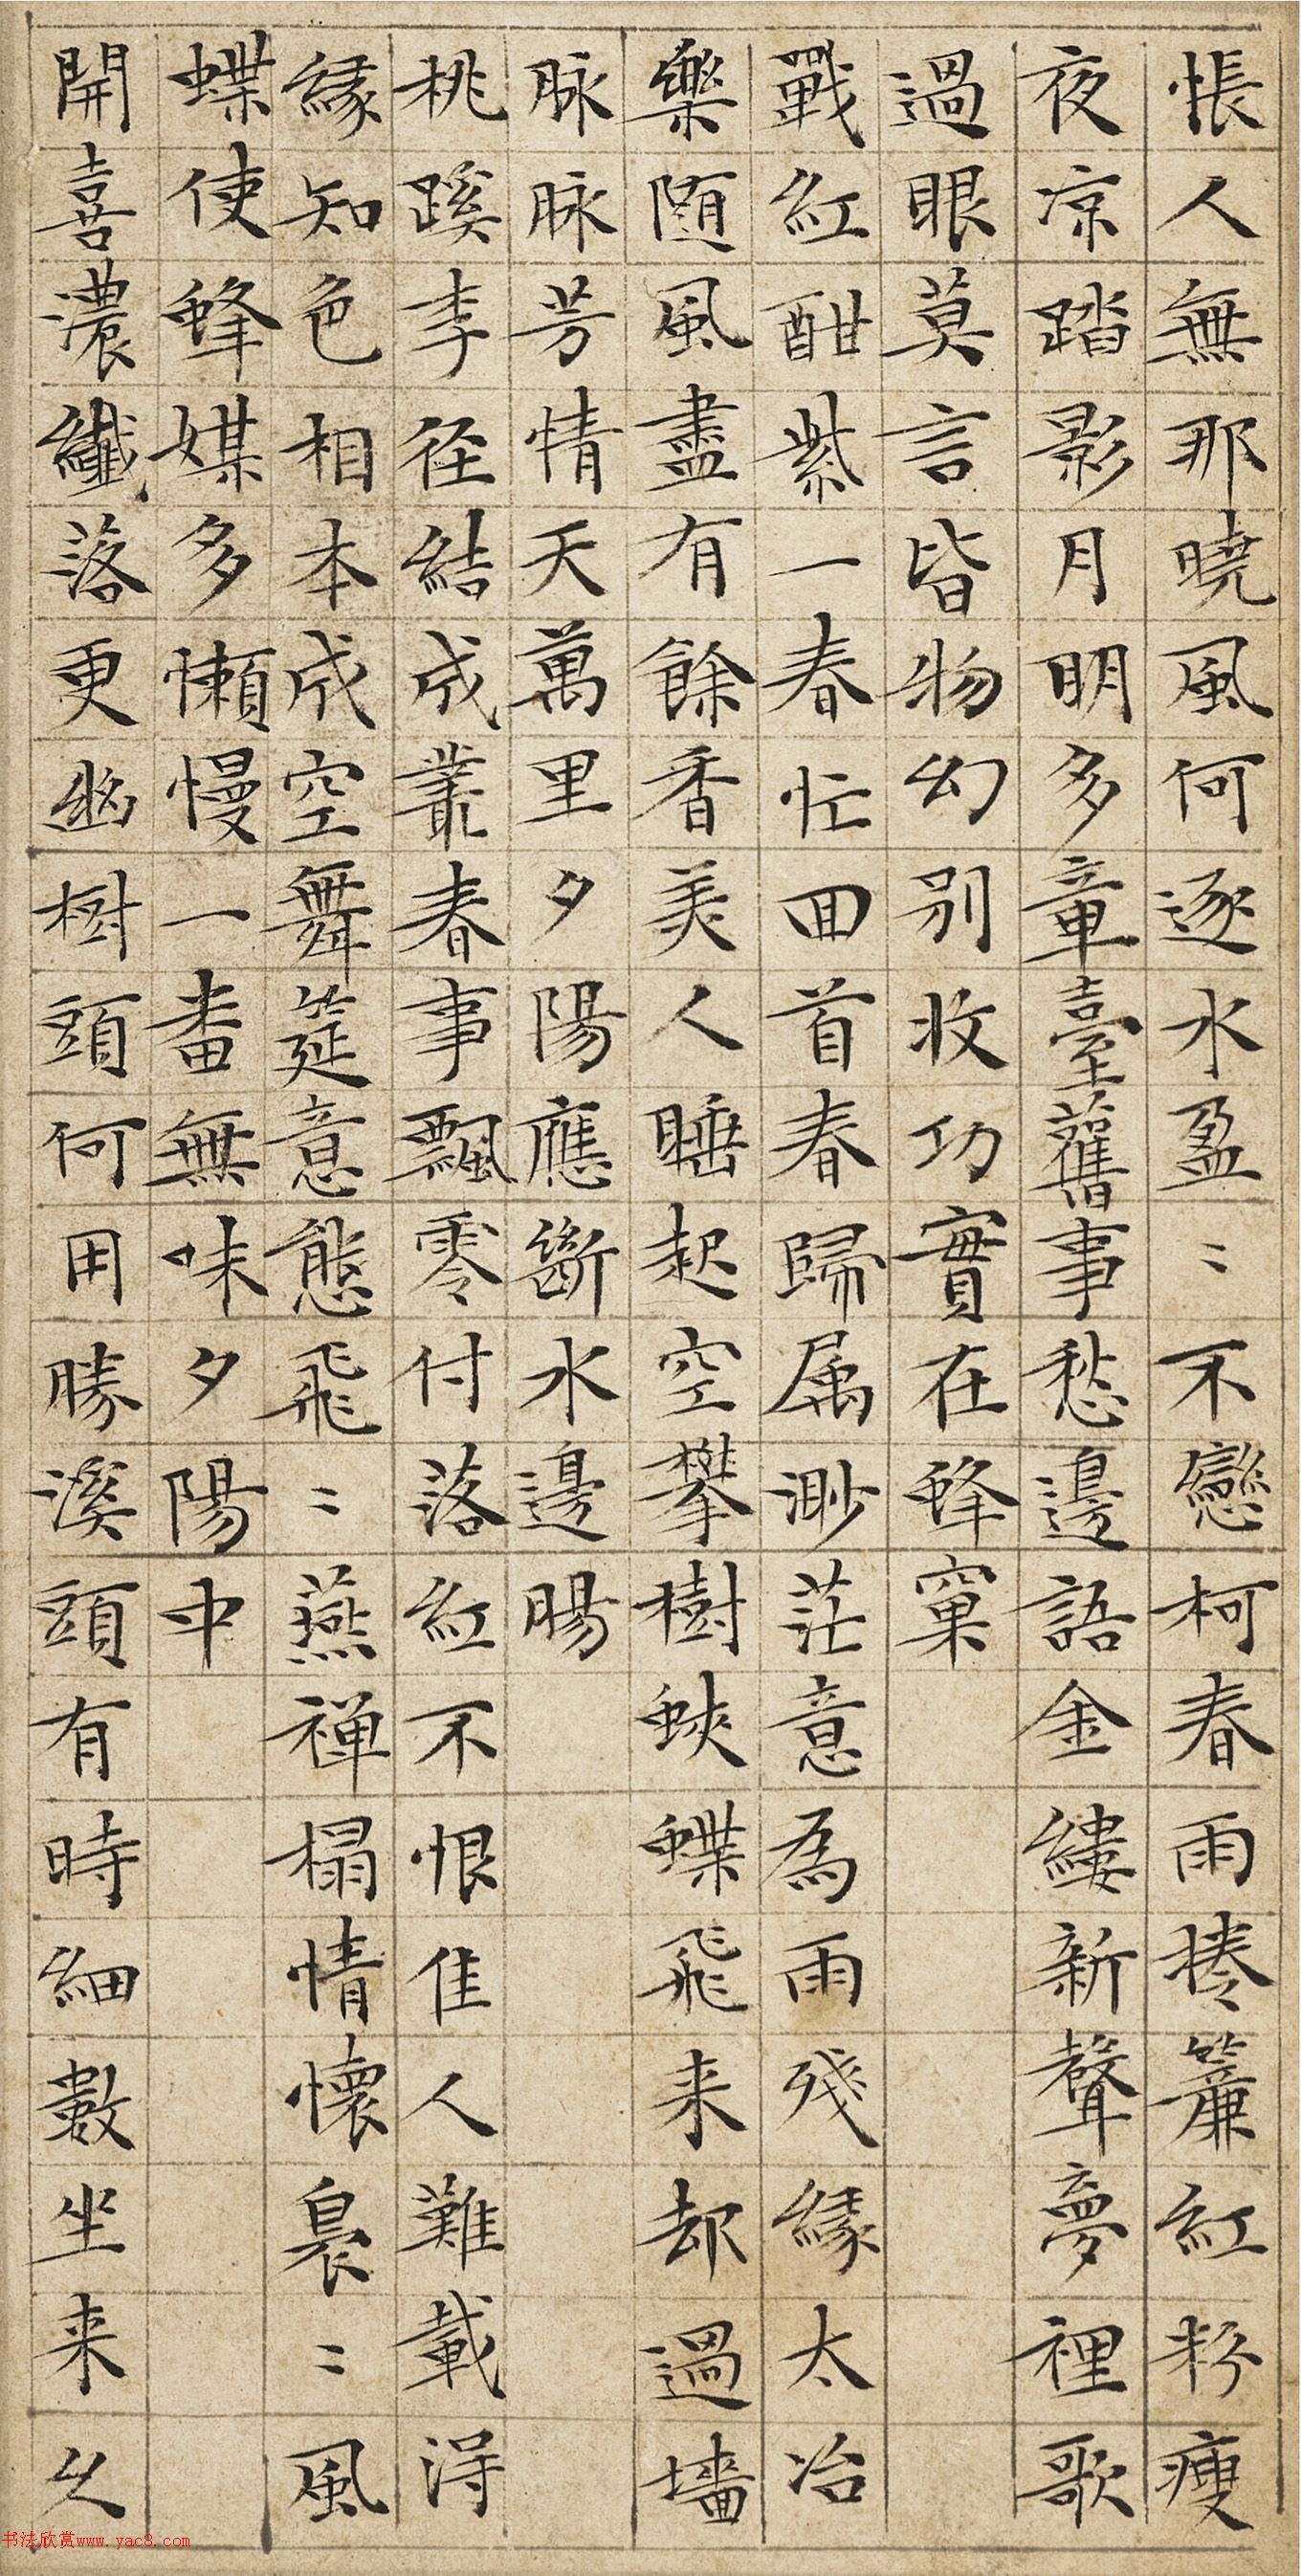 悵人無那曉風何逐水盈〻不戀柯春雨捲簾紅粉瘦
夜凉踏影月明多章臺舊事愁邊語金縷新聲夢裡歌
過眼莫言皆物幻别收功實在蜂窠
戰紅酣紫一春忙回首春歸属渺茫意為雨殘緣太冶
樂随風盡有餘香美人睡起空攀樹蛺蝶飛来却過墻
脉脉芳情天萬里夕陽應斷水邊腸
桃蹊李径結成叢春事飄零付落紅不恨佳人難載得
緣知色相本成空舞筵意態飛〻燕禅榻情懷裊〻風
蝶使蜂媒多懶慢一畨無味夕陽中
開喜濃纖落更幽樹頭何用勝溪頭有時細數坐来久
书法欣赏www.yac8.com